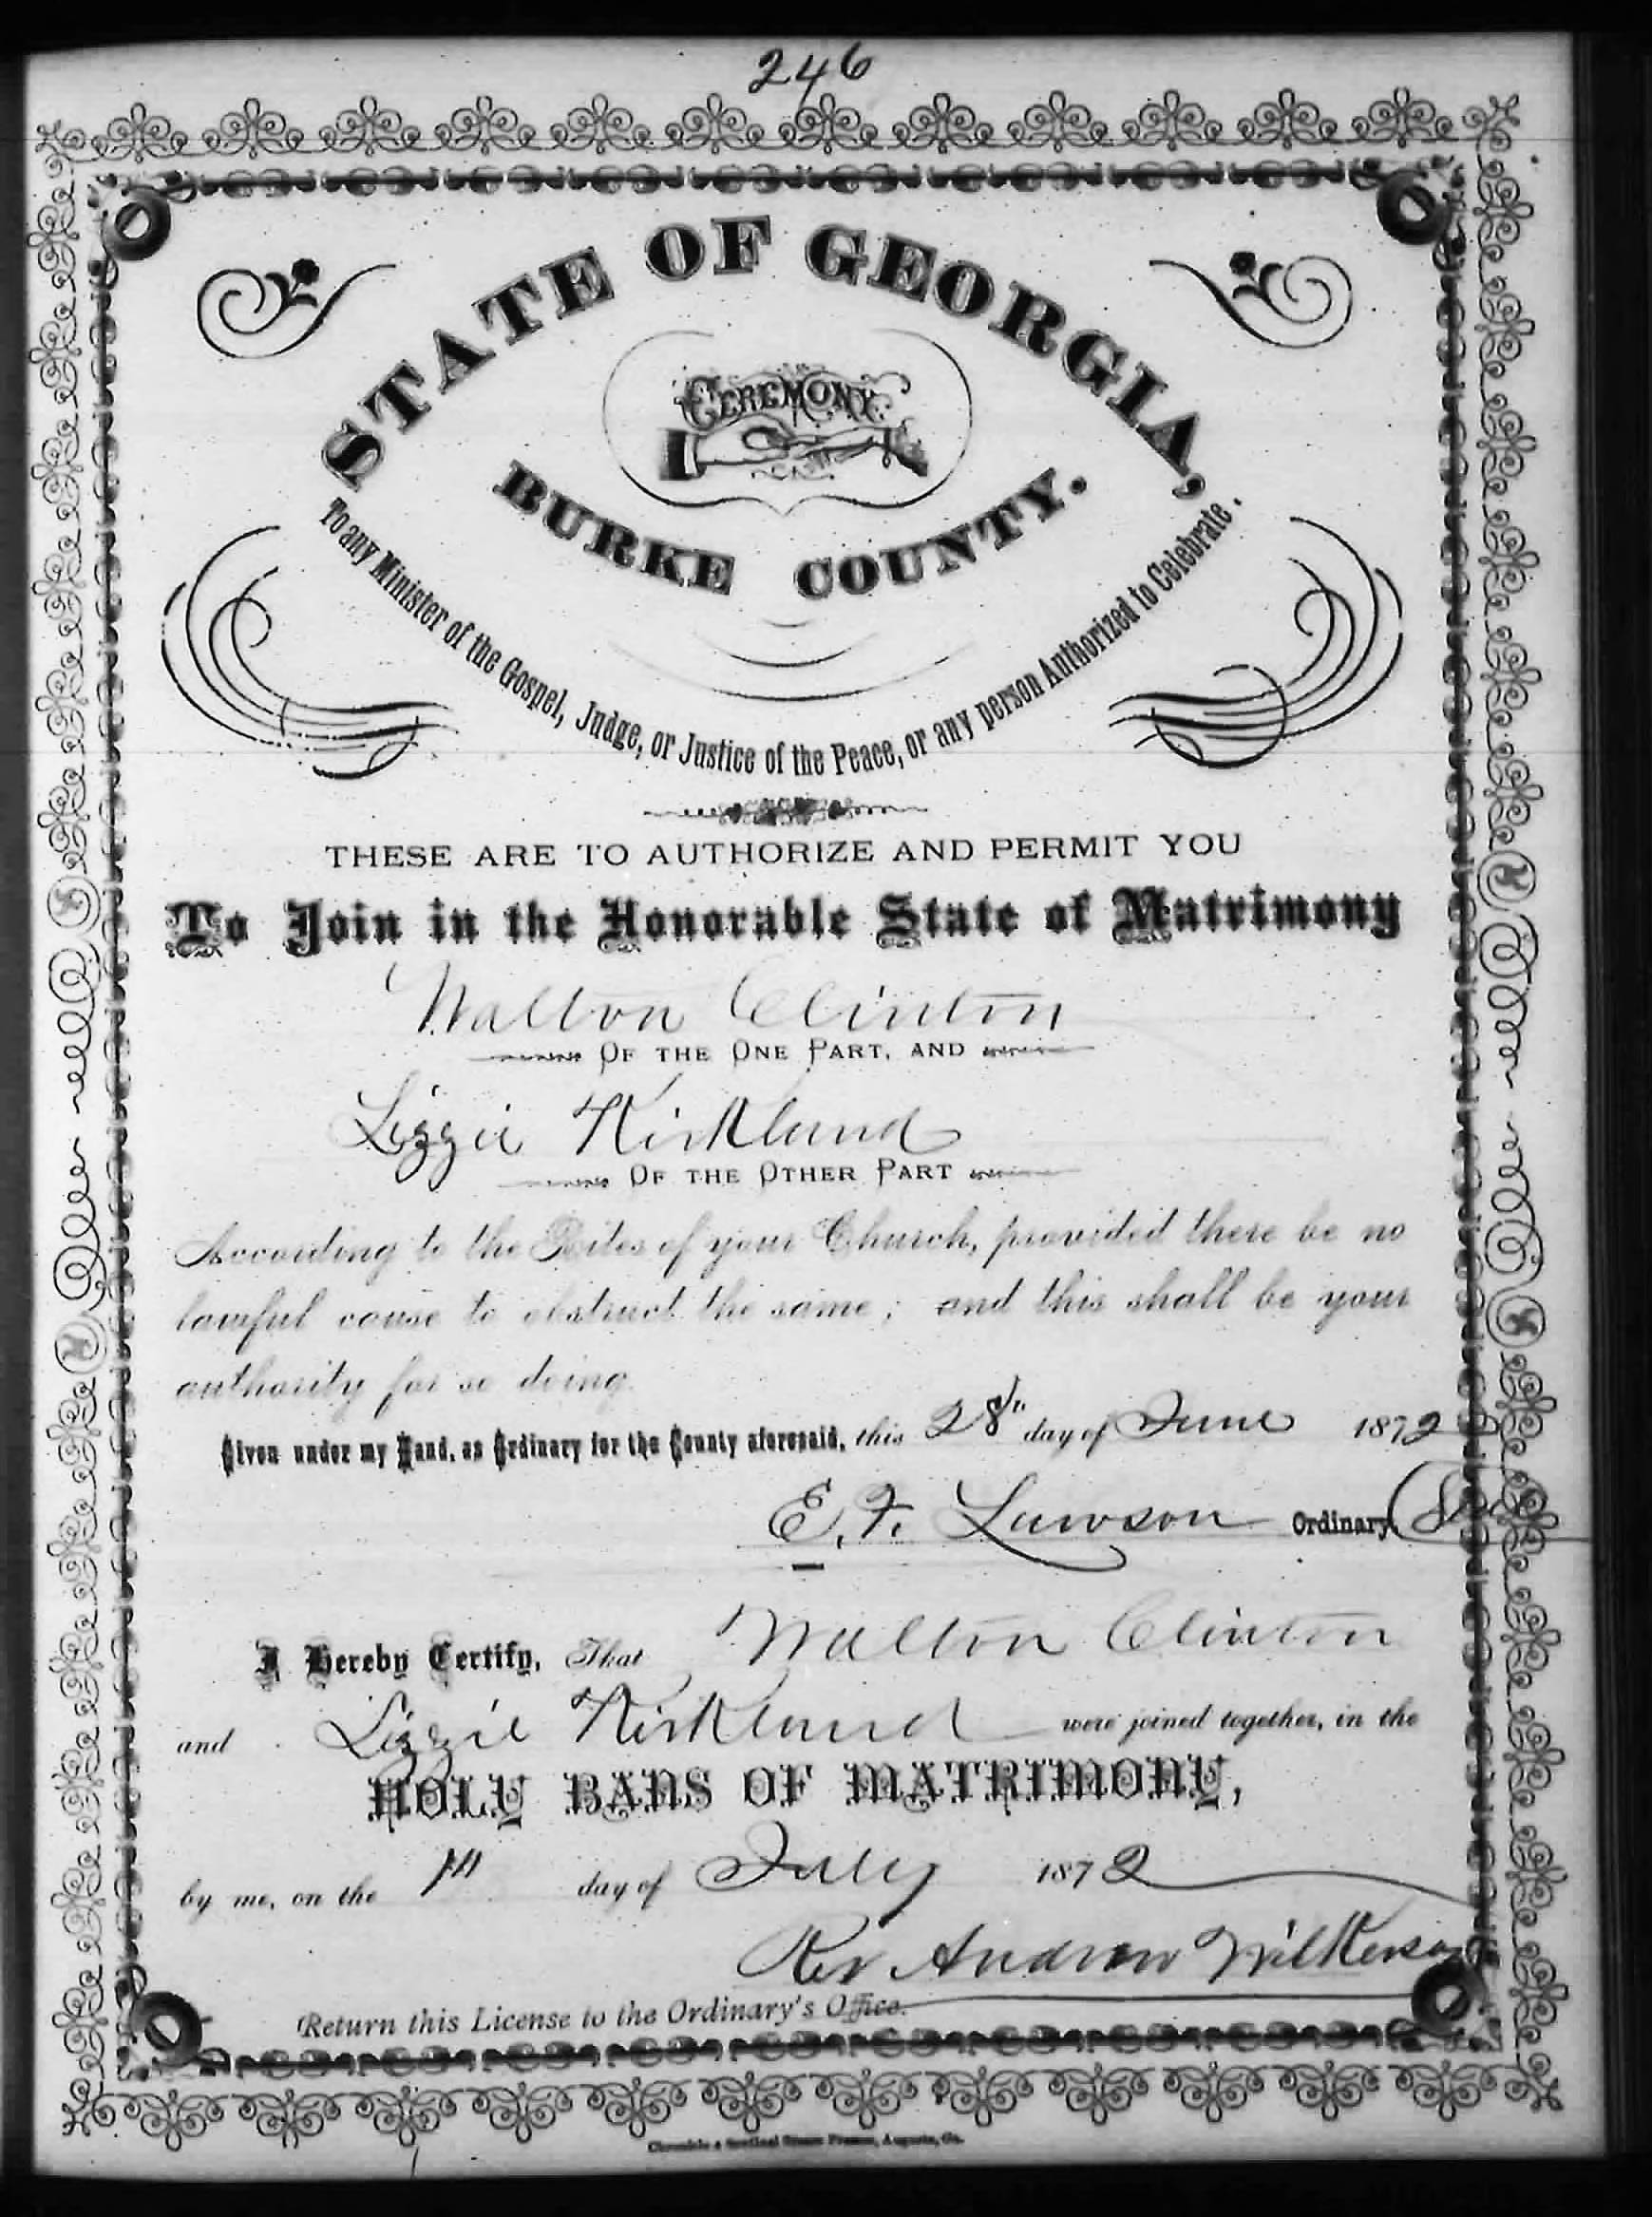 246
STATE OF GEORGIA,
CEREMONY
BURKE COUNTY.
To any Minister of the Gospel, Judge, or Justice of the Peace, or any person Authorized to Celebrate.
THESE ARE TO AUTHORIZE AND PERMIT YOU
To Join in the Honorable State of Matrimony
Walton Clinton
OF THE ONE PART, AND
Lizzie Kirkland
OF THE OTHER PART
According to the Rites of your Church, provided there be no
lawful cause to obstruct the same; and this shall be your
authority for so doing.
Given under my Hand, as Ordinary for the County aforesaid, this 28th day of June 1872
E. F. Lawson Ordinary (Seal
I Hereby Certify, That Walton Clinton
and Lizzie Kirkland were joined together, in the
HOLY BANS OF MATRIMONY,
by me, on the 1st day of July 1872
Rev Andrew Wilkerson
Return this License to the Ordinary's Office.
Chronicle & Sentinel Steam Presses, Augusta, Ga.